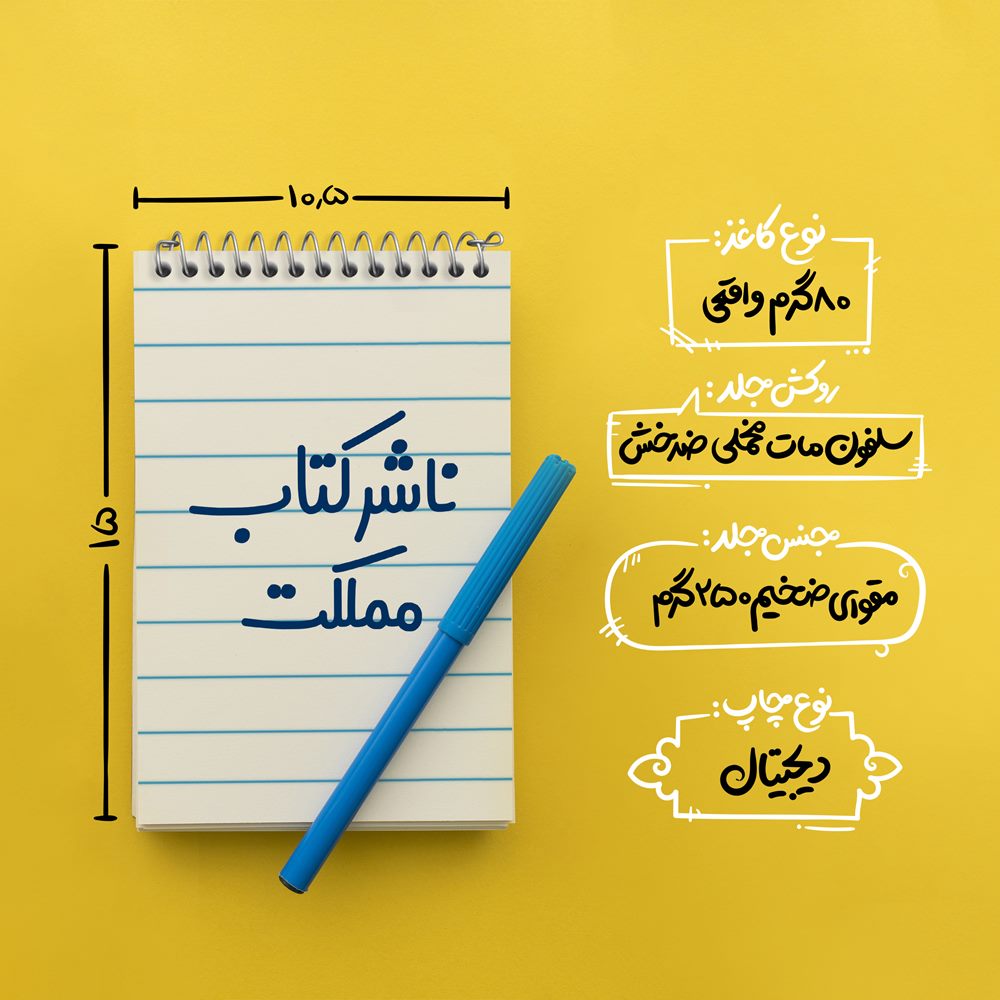 ۱۰٫۵
۱۵
ناشر کتاب
مملکت
نوع کاغذ:
۸۰ گرم واقعی
روکش جلد:
سلفون مات مخملی ضدخش
جنس جلد:
مقوای ضخیم ۲۵۰ گرم
نوع چاپ:
دیجیتال